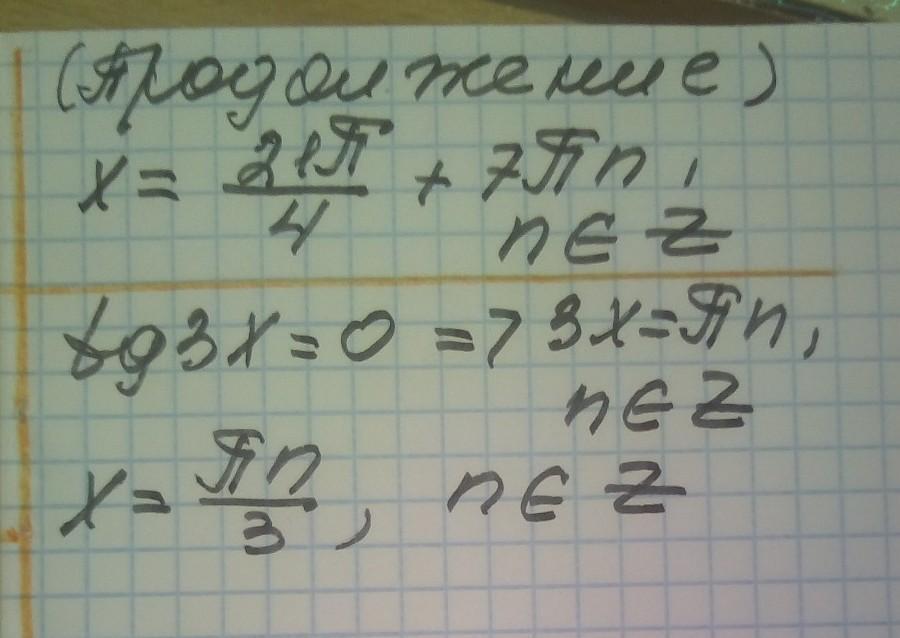 (Продолжение)
x = 21π/4 + 7πn,
n ∈ Z
tg3x = 0 => 3x = πn,
n ∈ Z
x = πn/3, n ∈ Z